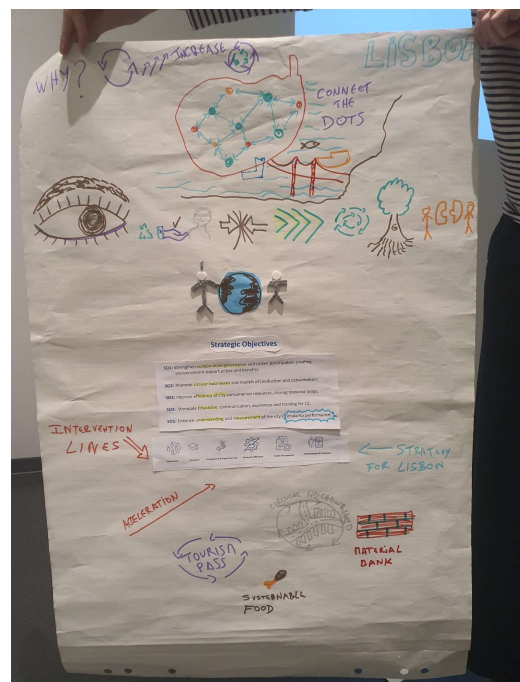 LISBOA
WHY?
INCREASE
CONNECT
THE
DOTS
Strategic Objectives
SO1: Strengthen collaborative governance and citizen participation, creating
socioeconomic opportunities and benefits;
SO2: Promote circular businesses and models of production and consumption;
SO3: Improve efficiency of city consumption resources, closing resource loops;
SO4: Stimulate Education, communication, awareness and training for CE;
SO5: Enhance understanding and measurement of the city's circularity performance.
INTERVENTION
LINES
STRATEGY
FOR LISBON
ACELERATION
CIRCULAR NEIGHBOURHOOD
TOURISM
PASS
MATERIAL
BANK
SUSTEANABLE
FOOD